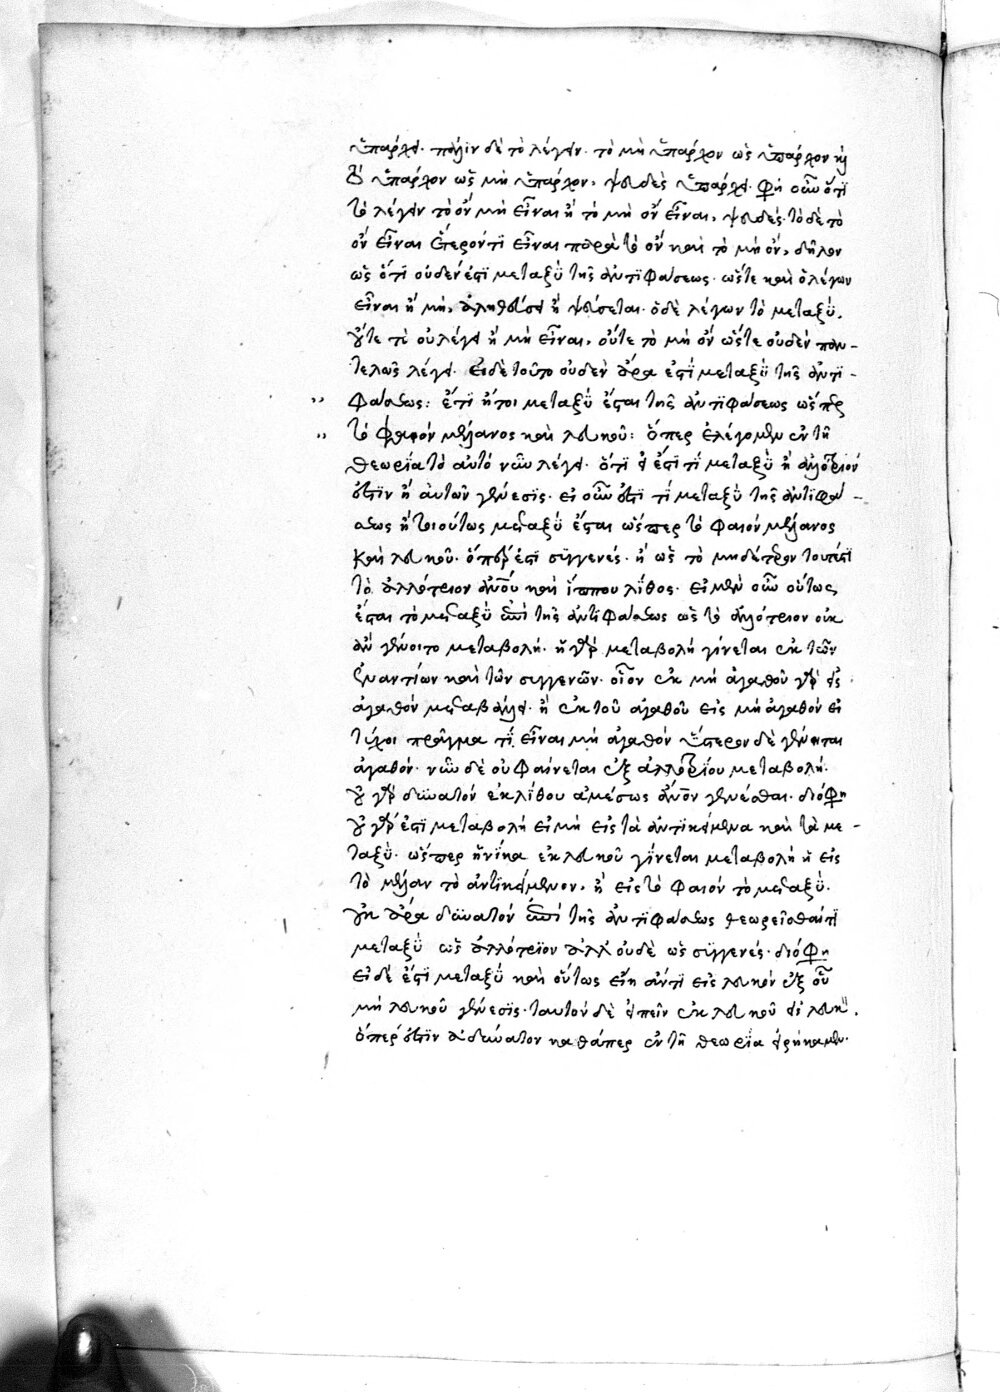 ὑπάρχει. πάλιν δὲ τὸ λέγειν τὸ μὴ ὑπάρχον ὡς ὑπάρχον καὶ
τὸ ὑπάρχον ὡς μὴ ὑπάρχον, ψευδὲς ὑπάρχει. φησὶ οὖν ὅτι
τὸ λέγειν τὸ ὂν μὴ εἶναι ἢ τὸ μὴ ὂν εἶναι, ψευδές. τὸ δὲ τὸ
ὂν εἶναι ἕτερόν τι εἶναι παρὰ τὸ ὂν καὶ τὸ μὴ ὄν, δῆλον
ὡς ὅτι οὐδέν ἐστι μεταξὺ τῆς ἀντιφάσεως. ὥστε καὶ ὁ λέγων
εἶναι ἢ μή, ἀληθεύσει ἢ ψεύσεται. ὁ δὲ λέγων τὸ μεταξύ,
οὔτε τὸ οὐ λέγει ἢ μὴ εἶναι, οὔτε τὸ μὴ ὄν ὥστε οὐδὲν παν-
τελῶς λέγει. εἰ δὲ τοῦτο οὐδὲν ἄρα ἐστὶ μεταξὺ τῆς ἀντι-
φάσεως: ἔτι ἤτοι μεταξὺ ἔσται τῆς ἀντιφάσεως ὥσπερ
τὸ φαιὸν μέλανος καὶ λευκοῦ: ὅπερ ἐλέγομεν ἐν τῇ
θεωρίᾳ τὸ αὐτὸ νῦν λέγει. ὅτι εἰ ἔστι τι μεταξὺ ἢ ἀλλότριόν
ἐστιν ἢ αὐτῶν γένεσις. εἰ οὖν ἔστι τι μεταξὺ τῆς ἀντιφά-
σεως ἤτοι οὕτως μεταξὺ ἔσται ὥσπερ τὸ φαιὸν μέλανος
καὶ λευκοῦ. ὅπερ ἐστὶ συγγενές. ἢ ὡς τὸ μηδέτερον τουτέστι
τὸ ἀλλότριον ἀνου καὶ ἵππου λίθος. εἰ μὲν οὖν οὕτως
ἔσται τὸ μεταξὺ ἐπὶ τῆς ἀντιφάσεως ὡς τὸ ἀλλότριον οὐκ
ἂν γένοιτο μεταβολή. ἡ γὰρ μεταβολὴ γίνεται ἐκ τῶν
ἐναντίων καὶ τῶν συγγενῶν. οἷον ἐκ μὴ ἀγαθοῦ γὰρ εἰς
ἀγαθὸν μεταβάλλει. ἢ ἐκ τοῦ ἀγαθοῦ εἰς μὴ ἀγαθὸν εἰ
τύχοι πρᾶγμα τι εἶναι μὴ ἀγαθὸν ὕστερον δὲ γένηται
ἀγαθόν. νῦν δὲ οὐ φαίνεται ἐξ ἀλλοτρίου μεταβολή.
οὐ γὰρ δυνατὸν ἐκ λίθου ἀμέσως ἀνον γενέσθαι. διό φησι
οὐ γάρ ἐστι μεταβολὴ εἰ μὴ εἰς τὰ ἀντικείμενα καὶ τὰ με-
ταξύ. ὥσπερ ἡνίκα ἐκ λευκοῦ γίνεται μεταβολὴ ἢ εἰς
τὸ μέλαν τὸ ἀντικείμενον, ἢ εἰς τὸ φαιὸν τὸ μεταξύ.
οὐκ ἄρα δυνατὸν ἐπὶ τῆς ἀντιφάσεως θεωρεῖσθαί τι
μεταξὺ ὡς ἀλλότριον ἀλλ' οὐδὲ ὡς συγγενές. διό φησι
εἰ δέ ἐστι μεταξὺ καὶ οὕτως εἴη ἄν τι εἰς λευκὸν ἐξ οὗ
μὴ λευκοῦ γένεσις. ταυτὸν δὲ εἰπεῖν ἐκ λευκοῦ εἰς λευκὸν.
ὅπερ ἐστὶν ἀδύνατον καθάπερ ἐν τῇ θεωρίᾳ εἰρήκαμεν.